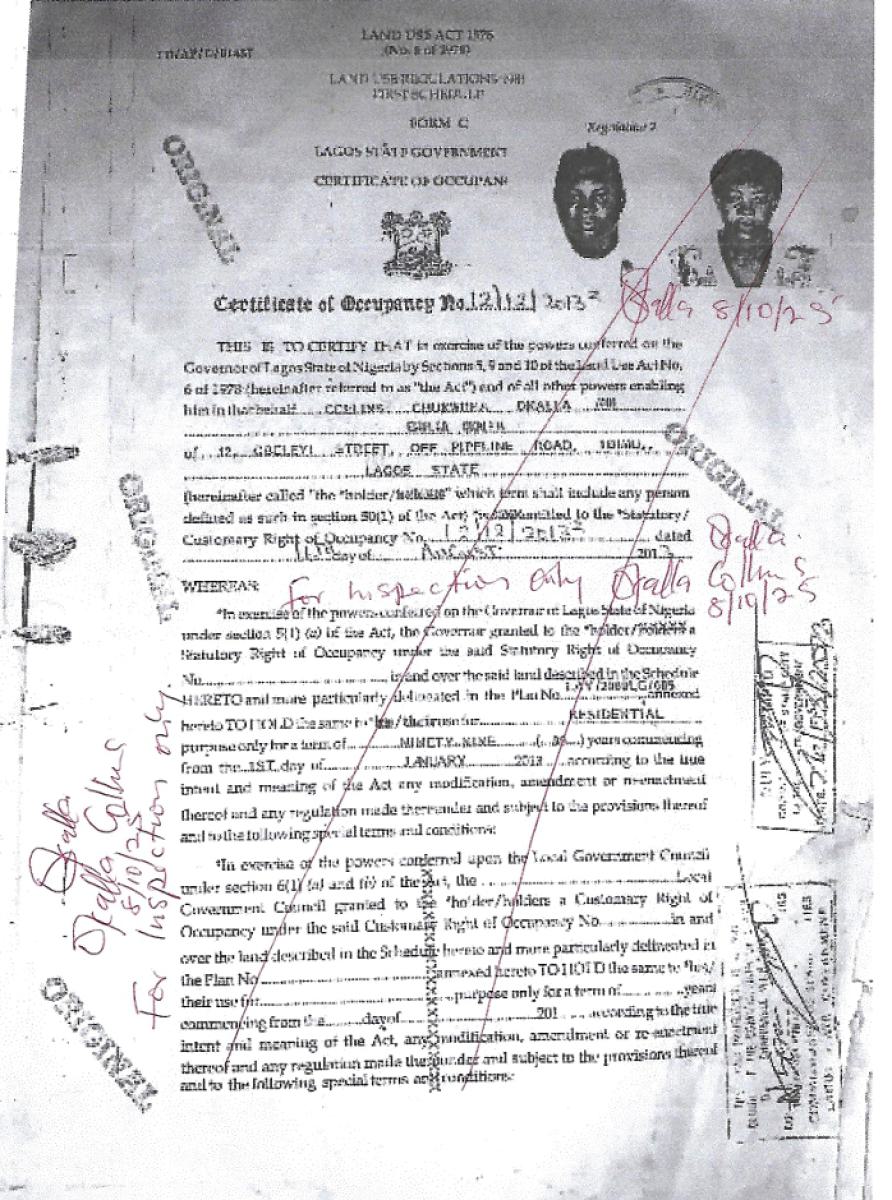 LAND USE ACT 1978
(No. 6 of 1978)
LAND USE REGULATIONS 1981
FIRST SCHEDULE
FORM C
Regulation 2
LAGOS STATE GOVERNMENT
CERTIFICATE OF OCCUPAN
ORIGINAL
Certificate of Occupancy No. 12/12/2013
Okalla 8/10/25
THIS IS TO CERTIFY THAT in exercise of the powers conferred on the
Governor of Lagos State of Nigeria by Sections 5, 9 and 10 of the Land Use Act No.
6 of 1978 (hereinafter referred to as "the Act") and of all other powers enabling
him in that behalf COLLINS OKALLA
of 12, STREET, OFF PIPELINE ROAD,
LAGOS STATE
ORIGINAL
(hereinafter called "the *holder/holders" which term shall include any person
defined as such in section 50(1) of the Act) entitled to the *Statutory/
Customary Right of Occupancy No. 12/12/2013 dated
day of August 2013
Okalla.
WHEREAS:
For Inspection Only Okalla Collins
8/10/25
ORIGINAL
*In exercise of the powers conferred on the Governor of Lagos State of Nigeria
under section 5(1) (a) of the Act, the Governor granted to the *holder/holders a
Statutory Right of Occupancy under the said Statutory Right of Occupancy
No. in and over the said land described in the Schedule
HERETO and more particularly delineated in the Plan No. annexed
hereto TO HOLD the same to his/their use for RESIDENTIAL
purpose only for a term of NINETY NINE years commencing
from the 1ST day of JANUARY 2013 according to the true
intent and meaning of the Act any modification, amendment or re-enactment
thereof and any regulation made thereunder and subject to the provisions thereof
and to the following special terms and conditions:
Okalla
Okalla Collins
8/10/25
For Inspection only.
*In exercise of the powers conferred upon the Local Government Council
under section 6(1) (a) and (b) of the Act, the Local
Government Council granted to the *holder/holders a Customary Right of
Occupancy under the said Customary Right of Occupancy No. in and
over the land described in the Schedule hereto and more particularly delineated in
the Plan No. annexed hereto TO HOLD the same to *his/
their use for purpose only for a term of years
commencing from the day of 201 according to the true
intent and meaning of the Act, any modification, amendment or re-enactment
thereof and any regulation made thereunder and subject to the provisions thereof
and to the following special terms and conditions:
ORIGINAL